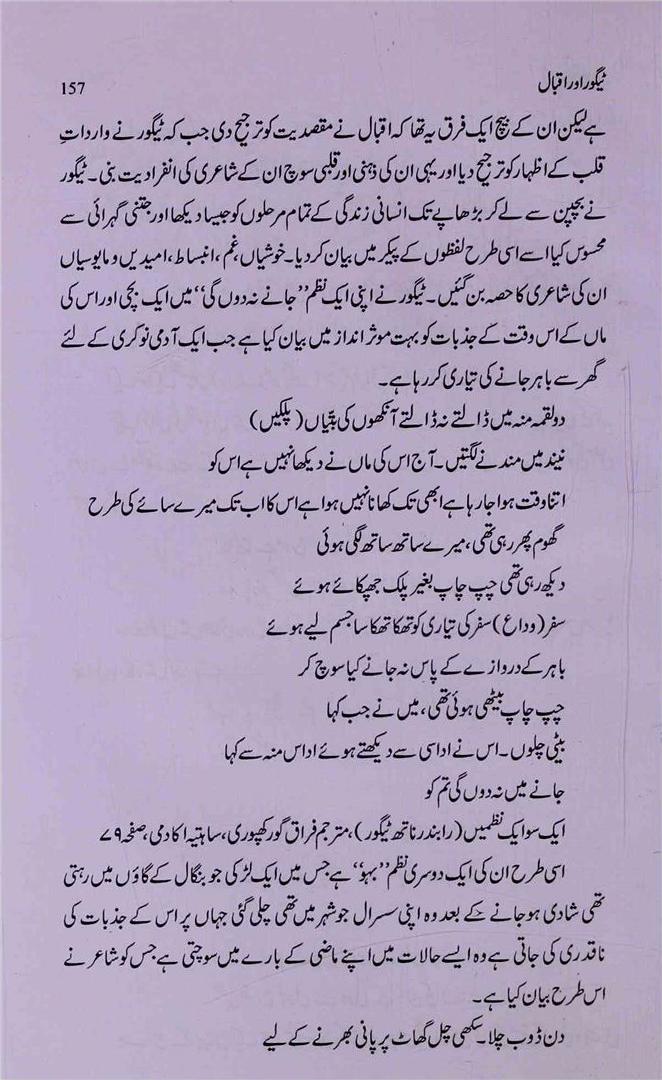 ٹیگور اور اقبال
157
ہے لیکن ان کے بیچ ایک فرق یہ تھا کہ اقبال نے مقصدیت کو ترجیح دی جب کہ ٹیگور نے وارداتِ
قلب کے اظہار کو ترجیح دیا اور یہی ان کی ذہنی اور قلبی سوچ ان کے شاعری کی انفرادیت بنی۔ ٹیگور
نے بچپن سے لے کر بڑھاپے تک انسانی زندگی کے تمام مرحلوں کو جیسا دیکھا اور جتنی گہرائی سے
محسوس کیا اسے اسی طرح لفظوں کے پیکر میں بیان کر دیا۔ خوشیاں، غم، انبساط، امیدیں و مایوسیاں
ان کی شاعری کا حصہ بن گئیں۔ ٹیگور نے اپنی ایک نظم ’’جانے نہ دوں گی‘‘ میں ایک بچی اور اس کی
ماں کے اس وقت کے جذبات کو بہت موثر انداز میں بیان کیا ہے جب ایک آدمی نوکری کے لئے
گھر سے باہر جانے کی تیاری کر رہا ہے۔
دولقمہ منہ میں ڈالتے نہ ڈالتے آنکھوں کی پتیاں (پلکیں)
نیند میں مندنے لگتیں۔ آج اس کی ماں نے دیکھا نہیں ہے اس کو
اتنا وقت ہوا جا رہا ہے ابھی تک کھانا نہیں ہوا ہے اس کا اب تک میرے سائے کی طرح
گھوم پھر رہی تھی، میرے ساتھ ساتھ لگی ہوئی
دیکھ رہی تھی چپ چاپ بغیر پلک جھپکائے ہوئے
سفر (وداع) سفر کی تیاری کو تھکا تھکا سا جسم لیے ہوئے
باہر کے دروازے کے پاس نہ جانے کیا سوچ کر
چپ چاپ بیٹھی ہوئی تھی، میں نے جب کہا
بیٹی چلوں۔ اس نے اداسی سے دیکھتے ہوئے اداس منہ سے کہا
جانے میں نہ دوں گی تم کو
ایک سو ایک نظمیں (رابندر ناتھ ٹیگور)، مترجم فراق گورکھپوری، ساہتیہ اکادمی، صفحہ ۷۹
اسی طرح ان کی ایک دوسری نظم ’’بہو‘‘ ہے جس میں ایک لڑکی جو بنگال کے گاؤں میں رہتی
تھی شادی ہو جانے کے بعد وہ اپنی سسرال جو شہر میں تھی چلی گئی جہاں پر اس کے جذبات کی
ناقدری کی جاتی ہے وہ ایسے حالات میں اپنے ماضی کے بارے میں سوچتی ہے جس کو شاعر نے
اس طرح بیان کیا ہے۔
دن ڈوب چلا۔ سکھی چل گھاٹ پر پانی بھرنے کے لیے